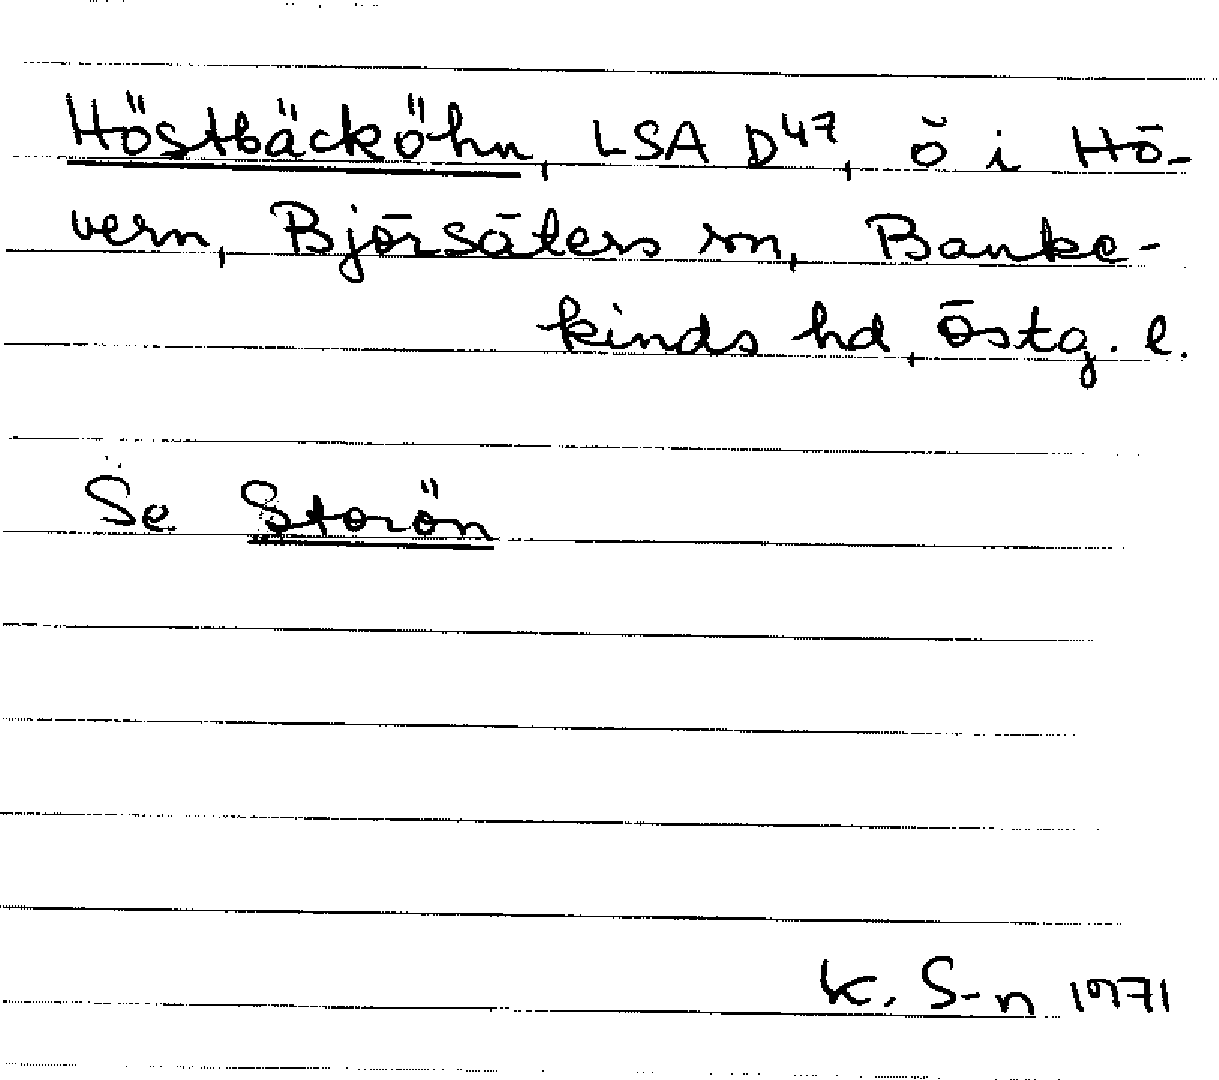 Höstbäcköhn, LSA D47, ö i Hö-
vern, Björsäters sn, Banke-
kinds hd, Östg. l.
Se Storön
K. S-n 1971